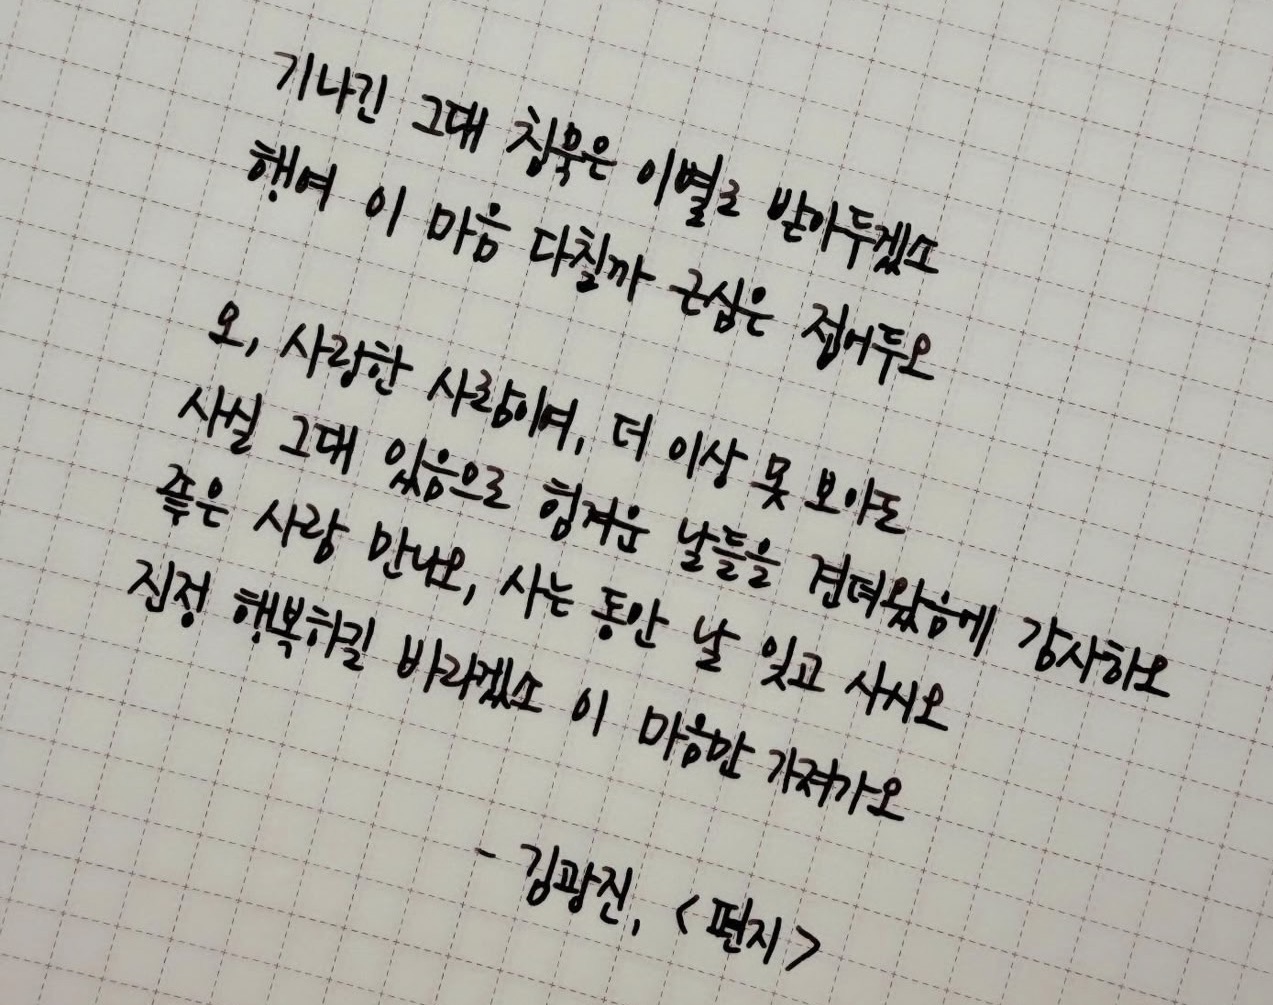 기나긴 그대 침묵은 이별로 받아두겠소
행여 이 마음 다칠까 근심은 접어두오
오, 사랑한 사람이여, 더 이상 못 보아도
사실 그대 있음으로 힘겨운 날들을 견뎌왔음에 감사하오
좋은 사람 만나오, 사는 동안 날 잊고 사시오
진정 행복하길 바라겠소 이 마음만 가져가오
- 김광진, <편지>